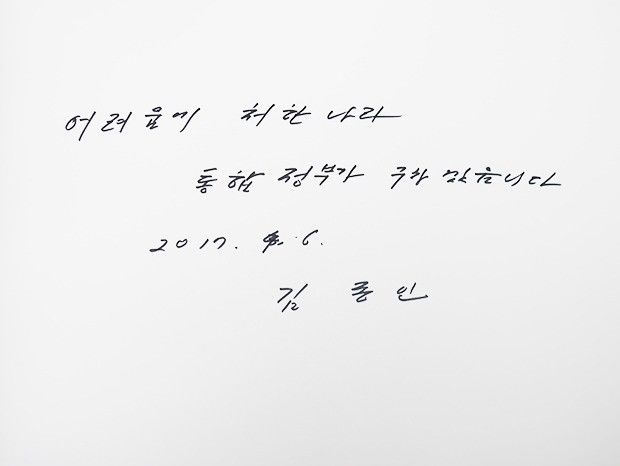 어려움에 처한 나라
통합 정부가 구하겠습니다
2017. 4. 6.
김 종 인